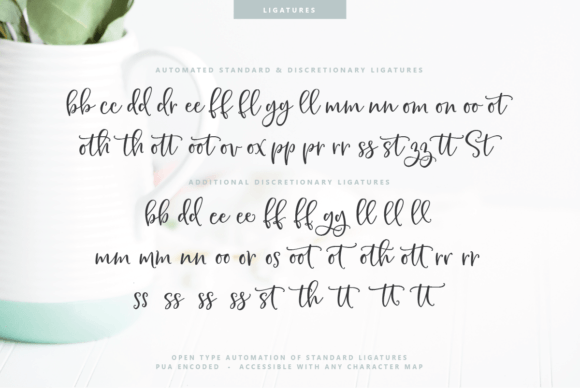 LIGATURES
AUTOMATED STANDARD & DISCRETIONARY LIGATURES
bb cc dd dr ee ff fl gg ll mm nn om on oo ot
oth th ott oot ov ox pp pr rr ss st zz tt St
ADDITIONAL DISCRETIONARY LIGATURES
bb dd ee ee ff ff gg ll ll ll
mm mm nn oo or os oot ot oth ott rr rr
ss ss ss ss st th tt tt tt
OPEN TYPE AUTOMATION OF STANDARD LIGATURES
PUA ENCODED - ACCESSIBLE WITH ANY CHARACTER MAP